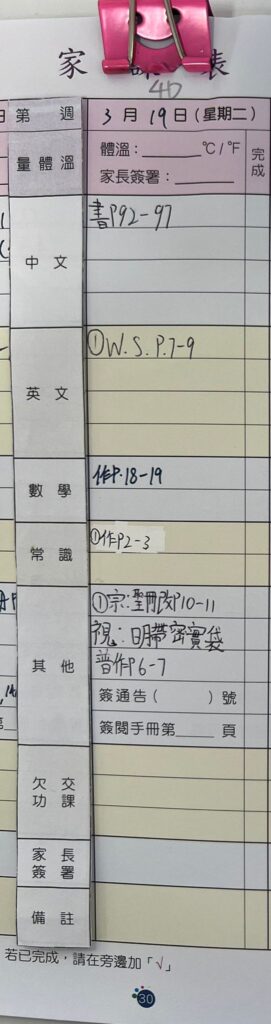 家課表
4D
第 週
3月19日(星期二)
量體溫
體溫：______ °C/°F
家長簽署：______
完成
中文
書P92-97
英文
①W.S.P.7-9
數學
作P.18-19
常識
①作P2-3
其他
①宗:聖冊改P10-11
視：明帶密實袋
普作P6-7
簽通告( )號
簽閱手冊第____頁
欠交功課
家長簽署
備註
若已完成，請在旁邊加「√」
30